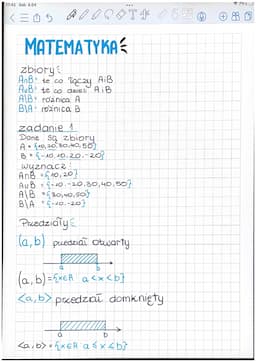 MATEMATYKA
zbiory:
A∩B- te co łączy A i B
A∪B- te co dzieli A i B
A\B- różnica A
B\A- różnica B
zadanie 1
Dane są zbiory
A = {10,20,30,40,50}
B = {-10,10,20,-20}
wyznacz:
A∩B = {10,20}
A∪B = {-10,-20,30,40,50}
A\B = {30,40,50}
B\A = {-10,-20}
Przedziały:
(a,b) przedział otwarty
a b
(a,b)={x∈R a<x<b}
<a,b> przedział domknięty
a b
<a,b>={x∈R a≤x≤b}